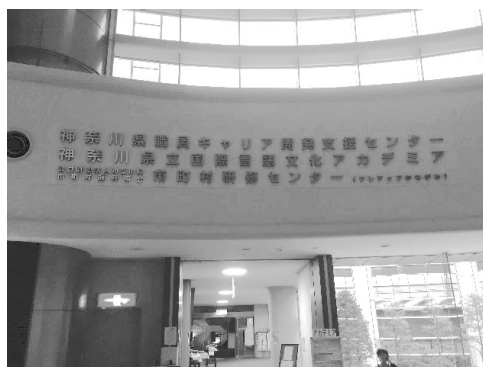 神奈川県職員キャリア開発支援センター
神奈川県立国際言語文化アカデミア
市町村研修センター